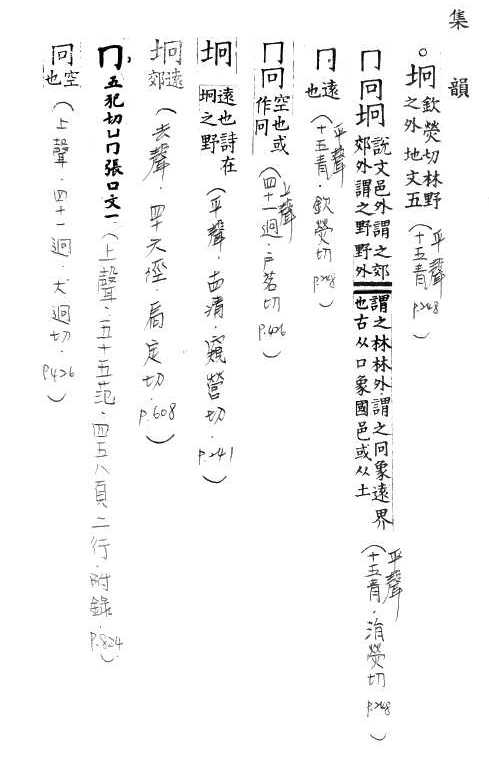 集韻
○坰欽熒切林野之外地文五(平聲十五青.p.248)
冂冋坰說文邑外謂之郊郊外謂之野野外謂之林林外謂之冋象遠界也古从口象國邑或从土(平聲十五青.涓熒切p.248)
冂遠也(平聲十五青.欽熒切p.248)
冂冋空也或作冋(上聲四十一迥.戶茗切p.426)
坰遠也詩在坰之野(平聲.十四清.窺營切.p.241)
坰遠郊(去聲.四十六徑.扃定切.p.608)
冂五犯切凵冂張口文一(上聲.五十五范.四五八頁二行.附錄.p.824)
冋空也(上聲.四十一迥.犬迥切.p.426)